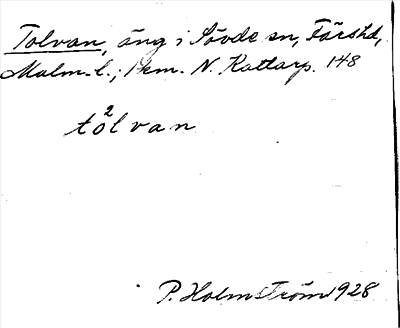 Tolvan, äng i Sövde sn, Färs hd,
Malm. l.; 1 km. N. Kattarp. 148
tȯ²lvan
P. Holmström 1928